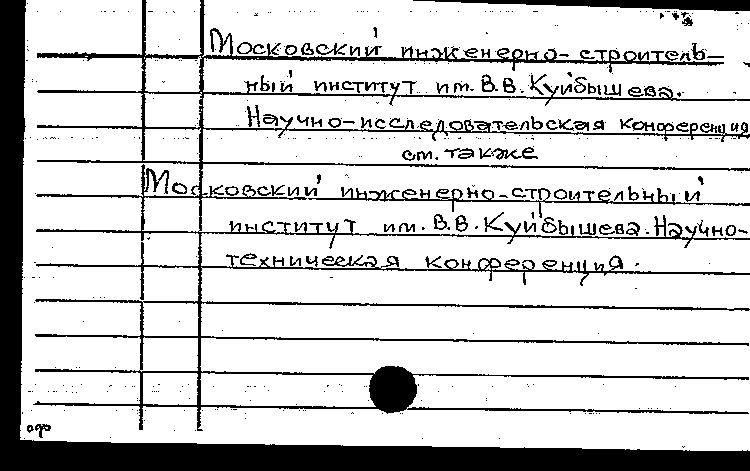 Московский инженерно-строитель-
ный институт им. В.В. Куйбышева.
Научно-исследовательская конференция
см. также
Московский инженерно-строительный
институт им. В.В. Куйбышева. Научно-
техническая конференция.